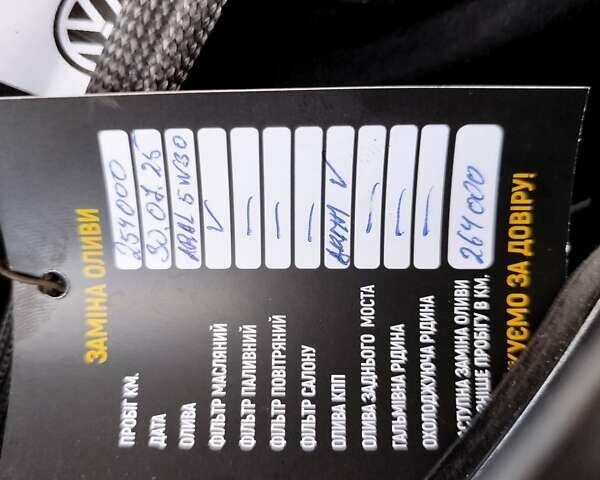 ЗАМІНА ОЛИВИ
ПРОБІГ КМ. 254000
ДАТА 30.07.25
ОЛИВА ARAL 5W30
ФІЛЬТР МАСЛЯНИЙ V
ФІЛЬТР ПАЛИВНИЙ —
ФІЛЬТР ПОВІТРЯНИЙ —
ФІЛЬТР САЛОНУ —
ОЛИВА КПП V
ОЛИВА ЗАДНЬОГО МОСТА —
ГАЛЬМІВНА РІДИНА —
ОХОЛОДЖУЮЧА РІДИНА —
СТУПНА ЗАМІНА ОЛИВИ
ПРОБІГУ В КМ. 264000
КУЄМО ЗА ДОВІРУ!